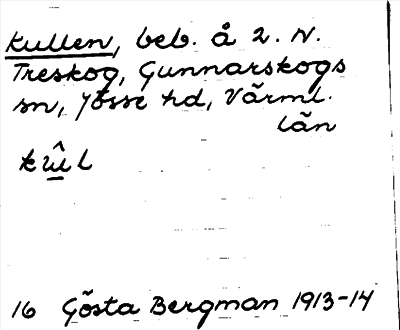 Kullen, beb. å 2. N.
Treskog, Gunnarskogs
sn, Jösse hd, Värml.
län
kûl
16 Gösta Bergman 1913-14